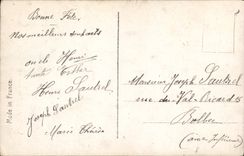 Bonne Fête
Nos meilleurs souhaits
oncle Henri
tante Esther
Henri Lautrel
Joseph Lautrel
Marie Thérèse
Made in France
Monsieur Joseph Lautrel
rue du Val Ricard
Bolbec
(Seine Inférieure)